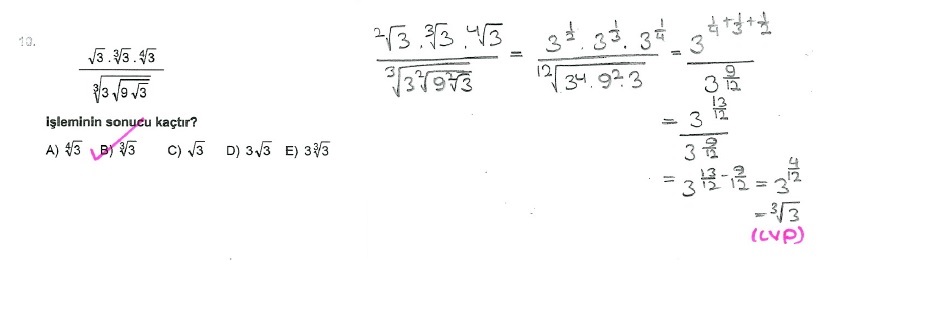 10.
√3 . ∛3 . ∜3
∛(3√(9√3))
işleminin sonucu kaçtır?
A) ∜3 B) ∛3 C) √3 D) 3√3 E) 3∛3
²√3 . ³√3 . ⁴√3 / ³√(3 ²√(9 ²√3)) = 3^(1/2) . 3^(1/3) . 3^(1/4) / ¹²√(3⁴ . 9² . 3) = 3^(1/4 + 1/3 + 1/2) / 3^(9/12)
= 3^(13/12) / 3^(9/12)
= 3^(13/12 - 9/12) = 3^(4/12)
= ³√3
(CVP)